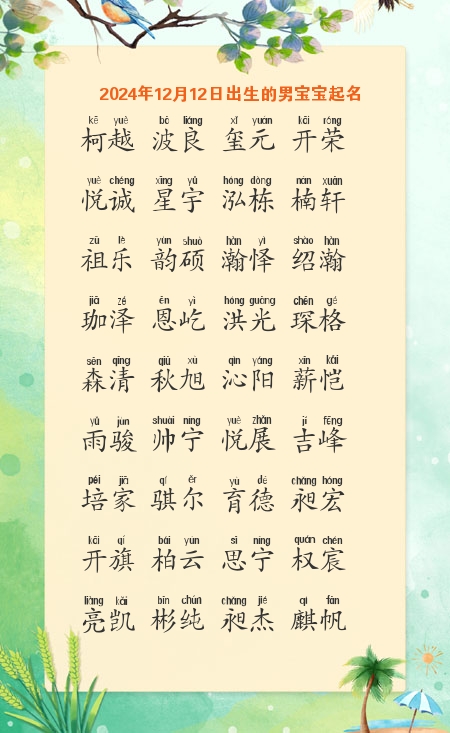 2024年12月12日出生的男宝宝起名
kē yuè bō liáng xǐ yuán kāi róng
柯越 波良 玺元 开荣
yuè chéng xīng yǔ hóng dòng nán xuān
悦诚 星宇 泓栋 楠轩
zǔ lè yùn shuò hàn yì shào hàn
祖乐 韵硕 瀚怿 绍瀚
jiā zé ēn yì hóng guāng chēn gé
珈泽 恩屹 洪光 琛格
sēn qīng qiū xù qìn yáng xīn kǎi
森清 秋旭 沁阳 薪恺
yǔ jùn shuài níng yuè zhǎn jí fēng
雨骏 帅宁 悦展 吉峰
péi jiā qí ěr yù dé chǎng hóng
培家 骐尔 育德 昶宏
kāi qí bǎi yún sī níng quán chén
开旗 柏云 思宁 权宸
liàng kǎi bīn chún chǎng jié qí fān
亮凯 彬纯 昶杰 麒帆